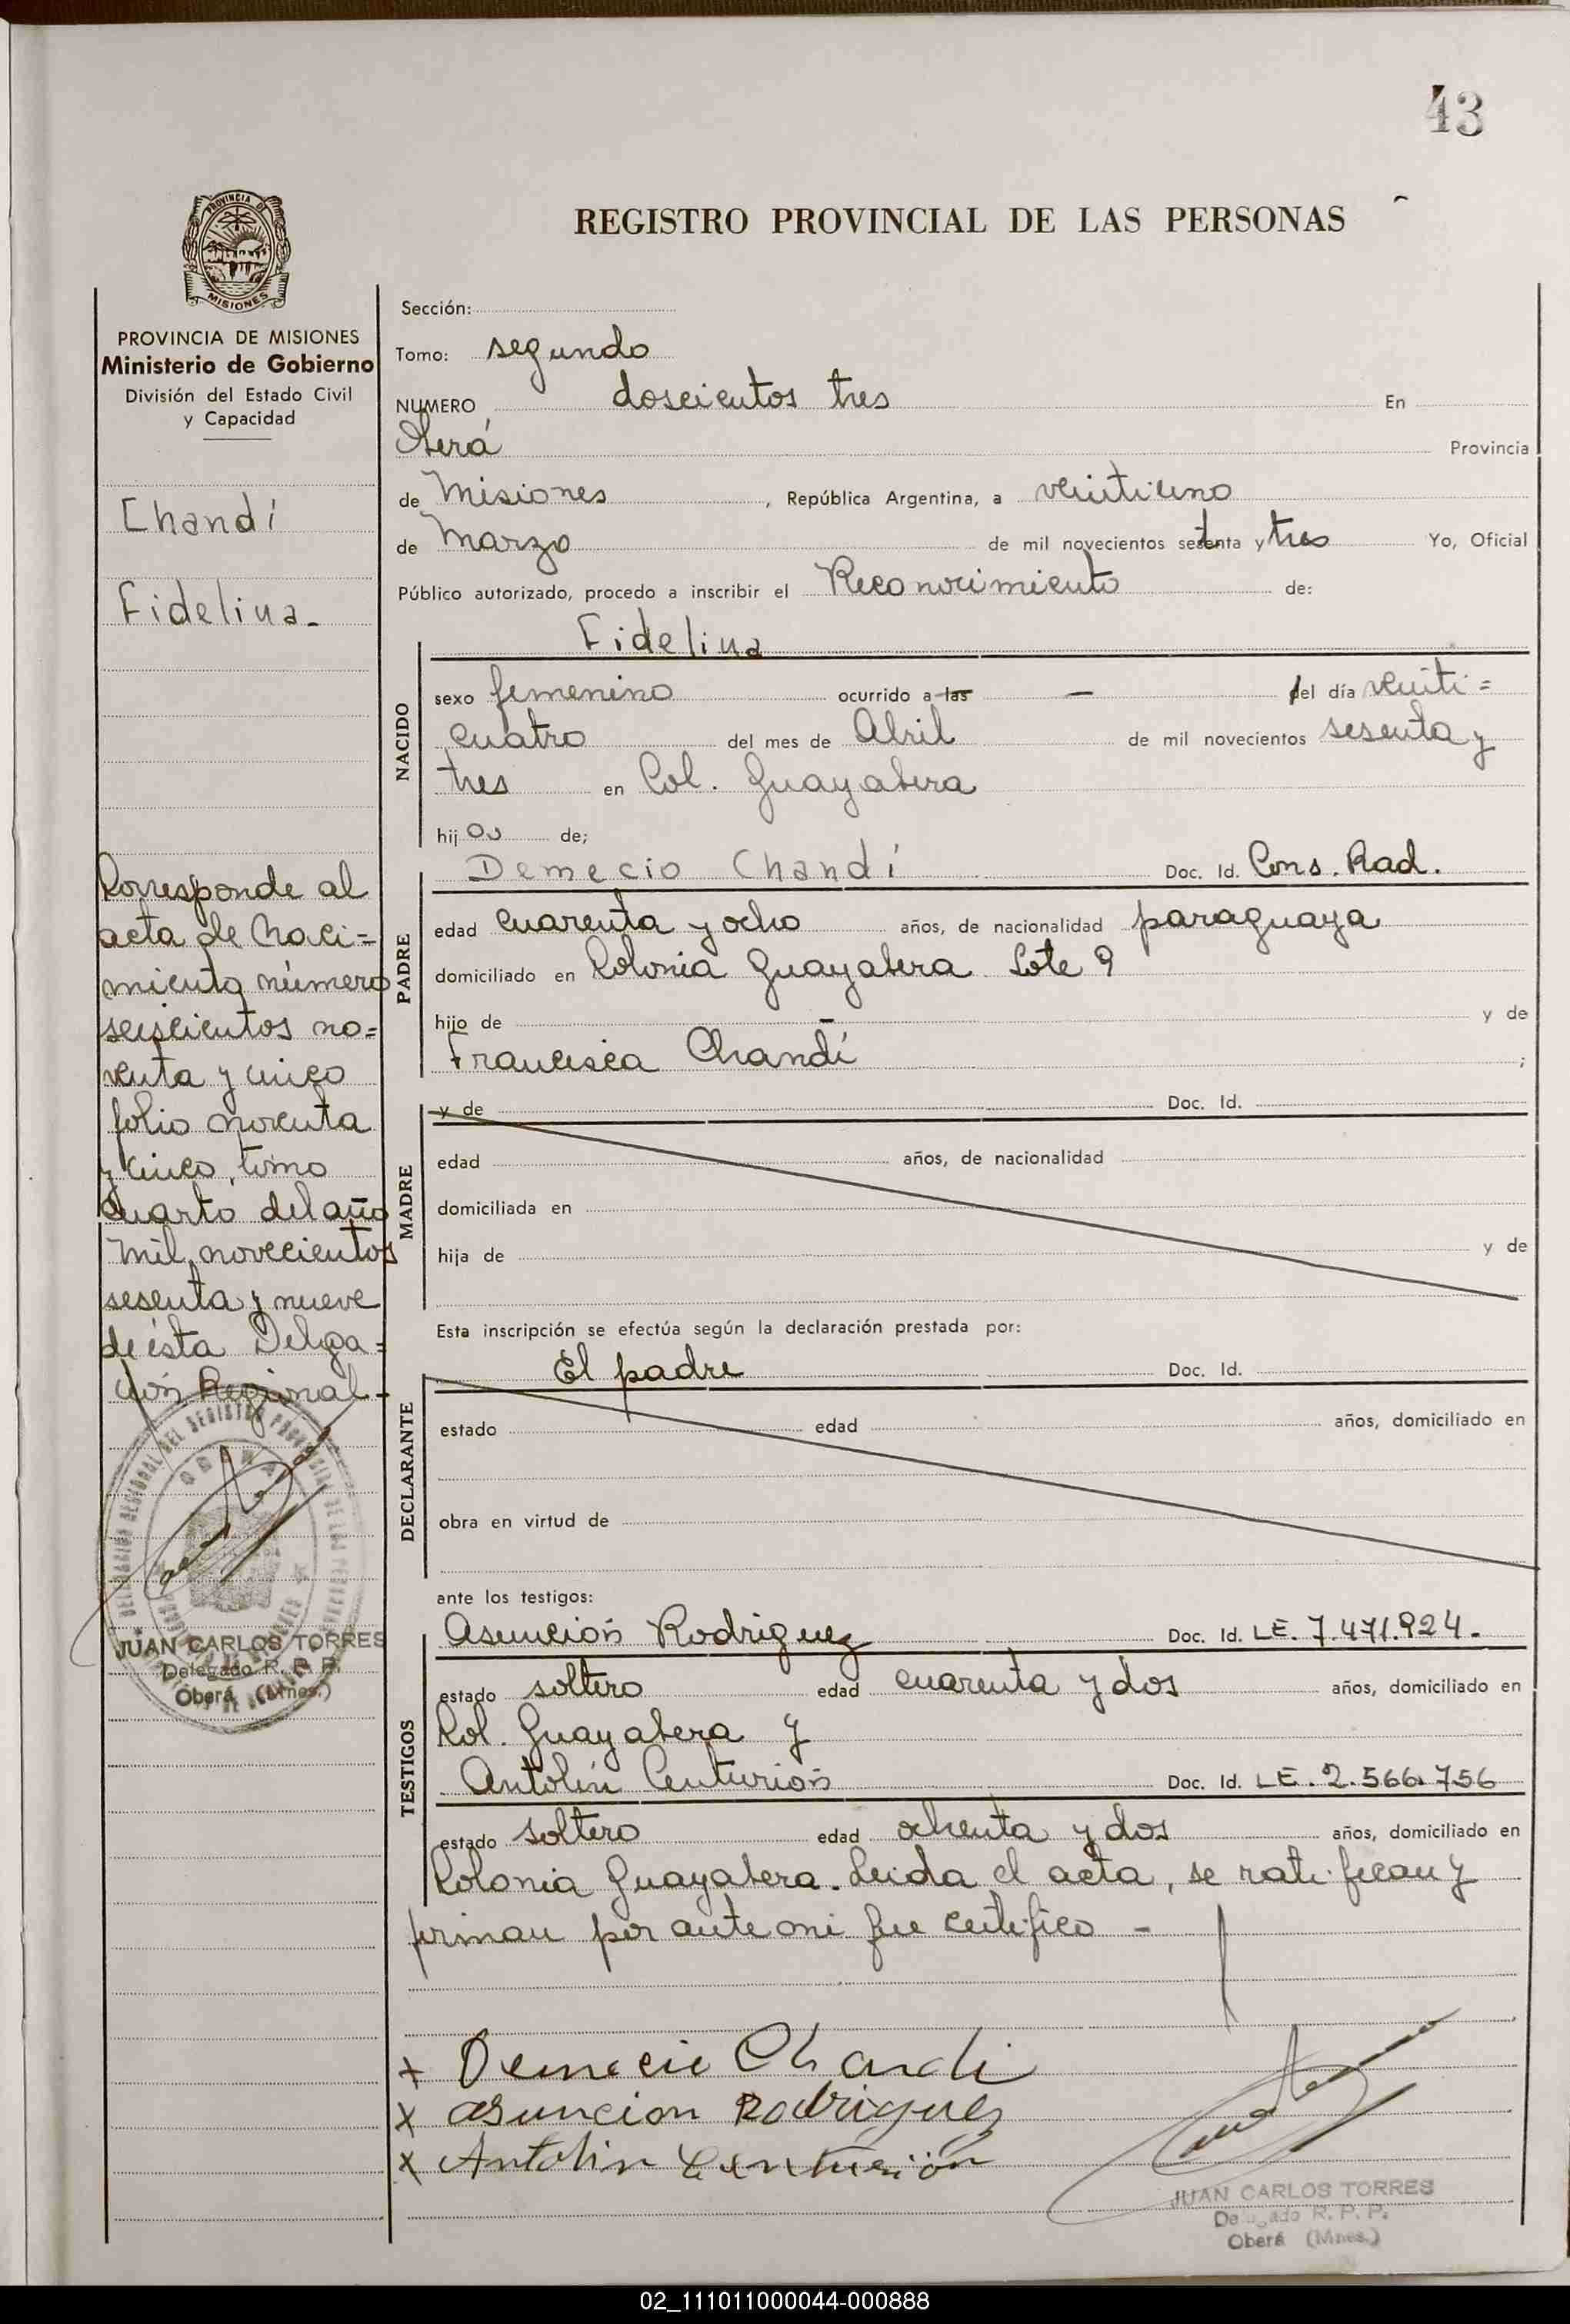 43
REGISTRO PROVINCIAL DE LAS PERSONAS
PROVINCIA DE MISIONES
PROVINCIA DE MISIONES
Ministerio de Gobierno
División del Estado Civil
y Capacidad
Chandí
Fidelina.-
Corresponde al
acta de naci=
miento número
seiscientos no=
venta y cinco
folio noventa
y cinco, tomo
cuarto del año
mil novecientos
sesenta y nueve
de ésta Delega=
ción Regional-
JUAN CARLOS TORRES
Delegado R. P. P.
Oberá (Mnes.)
Sección:
Tomo: segundo
NUMERO doscientos tres En
Oberá Provincia
de Misiones, República Argentina, a veintiuno
de Marzo de mil novecientos setenta y tres Yo, Oficial
Público autorizado, procedo a inscribir el Reconocimiento de:
Fidelina
NACIDO
sexo femenino ocurrido a las — del día veinti=
cuatro del mes de Abril de mil novecientos sesenta y
tres en Col. Guayabera
hij os de;
PADRE
Demecio Chandí Doc. Id. Cons. Rad.
edad cuarenta y ocho años, de nacionalidad paraguaya
domiciliado en Colonia Guayabera Lote 9
hijo de — y de
Francisca Chandí ;
MADRE
y de Doc. Id.
edad años, de nacionalidad
domiciliada en
hija de y de
Esta inscripción se efectúa según la declaración prestada por:
DECLARANTE
El padre Doc. Id.
estado edad años, domiciliado en
obra en virtud de
ante los testigos:
TESTIGOS
Asunción Rodriguez Doc. Id. LE. 7.471.924.-
estado soltero edad cuarenta y dos años, domiciliado en
Col. Guayabera y
Antolín Centurión Doc. Id. LE. 2.566.756
estado soltero edad ochenta y dos años, domiciliado en
Colonia Guayabera. Leida el acta, se ratifican y
firman por ante mi que certifico -
x Demecio Chandi
x asuncion Rodriguez
x Antolin Centurión
JUAN CARLOS TORRES
Delegado R. P. P.
Oberá (Mnes.)
02_111011000044-000888